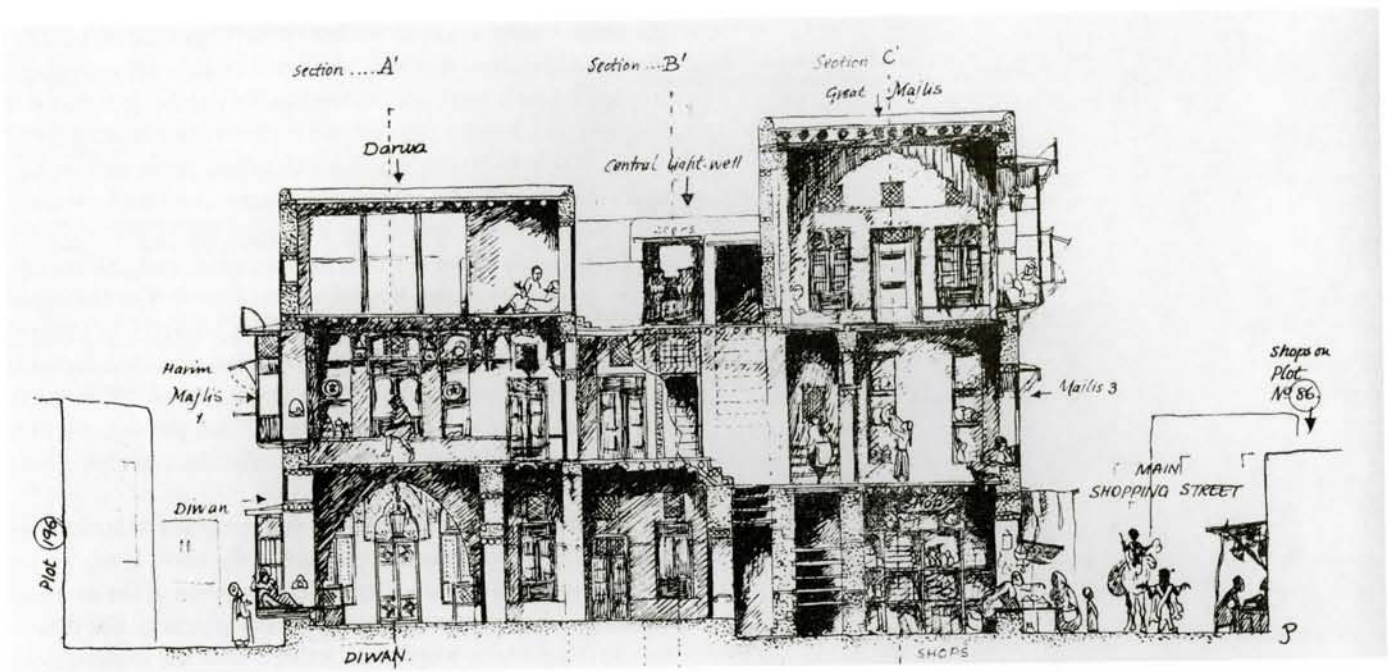 Section.....A'
Section...B'
Section C'
Great Majlis
Darwa
Central Light-well
Harim
Majlis
Majlis 3
Shops on
Plot
Nº 86.
MAIN
SHOPPING STREET
Diwan
Plot 196
SHOPS
DIWAN
SHOPS